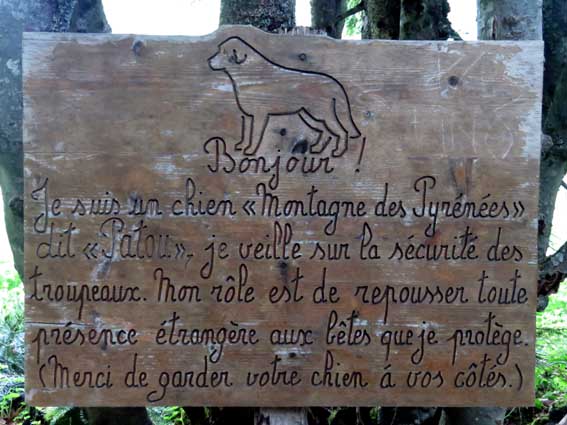 Bonjour !
Je suis un chien «Montagne des Pyrénées»
dit «Patou», je veille sur la sécurité des
troupeaux. Mon rôle est de repousser toute
présence étrangère aux bêtes que je protège.
(Merci de garder votre chien á vos côtés.)